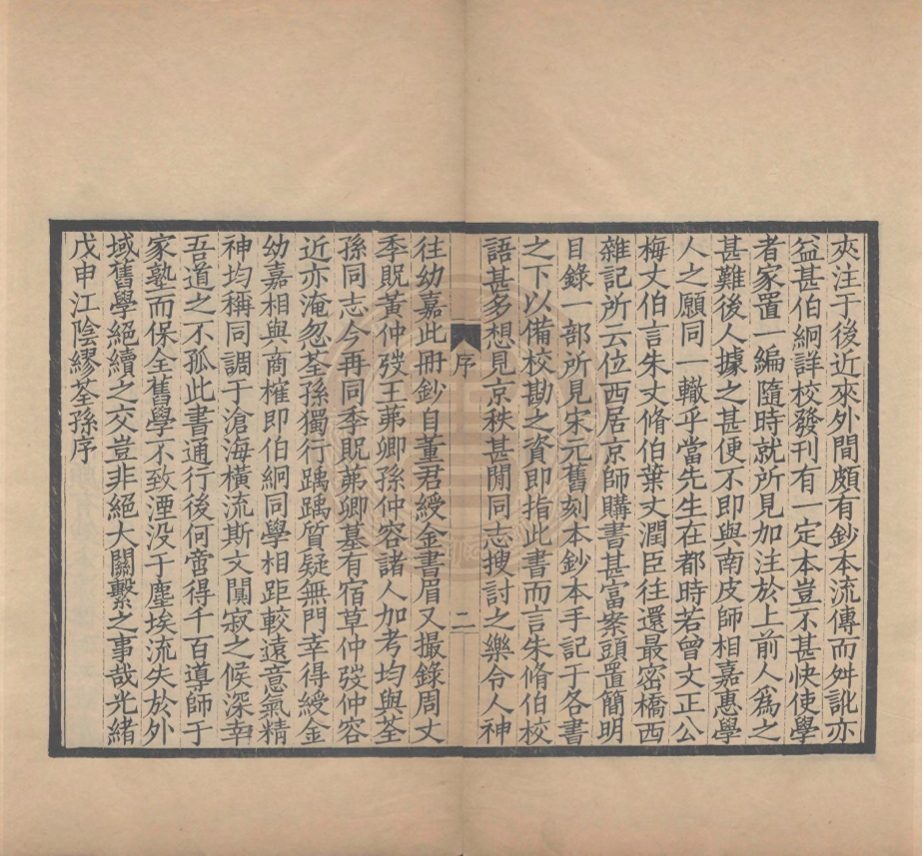 夾注于後近來外間頗有鈔本流傳而舛訛亦
益甚伯絅詳校發刊有一定本豈不甚快使學
者家置一編隨時就所見加注於上前人爲之
甚難後人據之甚便不卽與南皮師相嘉惠學
人之願同一轍乎當先生在都時若曾文正公
梅丈伯言朱丈脩伯葉丈潤臣往還最密橋西
雜記所云位西居京師購書甚富案頭置簡明
目錄一部所見宋元舊刻本鈔本手記于各書
之下以備校勘之資卽指此書而言朱脩伯校
語甚多想見京秩甚閒同志搜討之樂令人神
序
二
往幼嘉此冊鈔自董君綬金書眉又撮錄周丈
季貺黃仲弢王茀卿孫仲容諸人加考均與荃
孫同志今再同季貺茀卿墓有宿草仲弢仲容
近亦淹忽荃孫獨行踽踽質疑無門幸得綬金
幼嘉相與商榷卽伯絅同學相距較遠意氣精
神均稱同調于滄海橫流斯文闃寂之候深幸
吾道之不孤此書通行後何啻得千百導師于
家塾而保全舊學不致湮没于塵埃流失於外
域舊學絕續之交豈非絕大關繫之事哉光緒
戊申江陰繆荃孫序